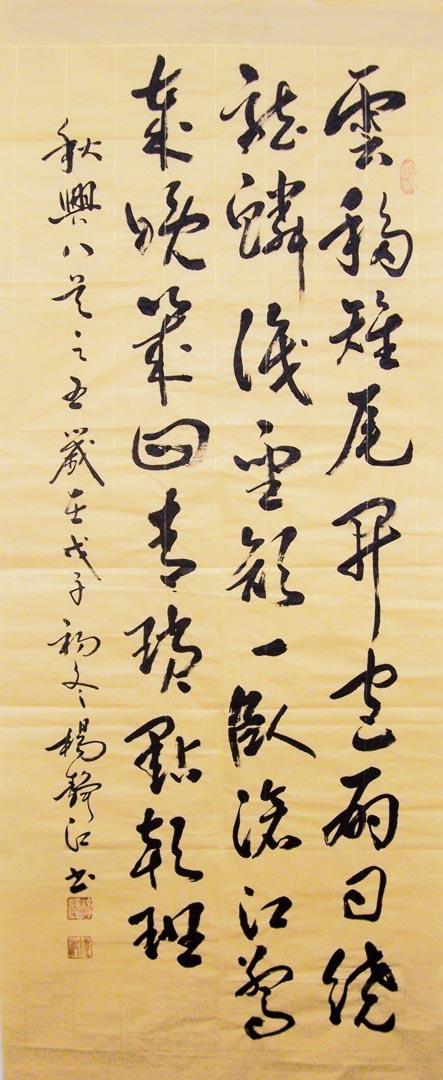 雲移雉尾開宮扇日繞
龍鱗識聖顏一臥滄江驚
歲晚幾回青瑣點朝班
秋興八首之五歲在戊子初冬楊靜江書